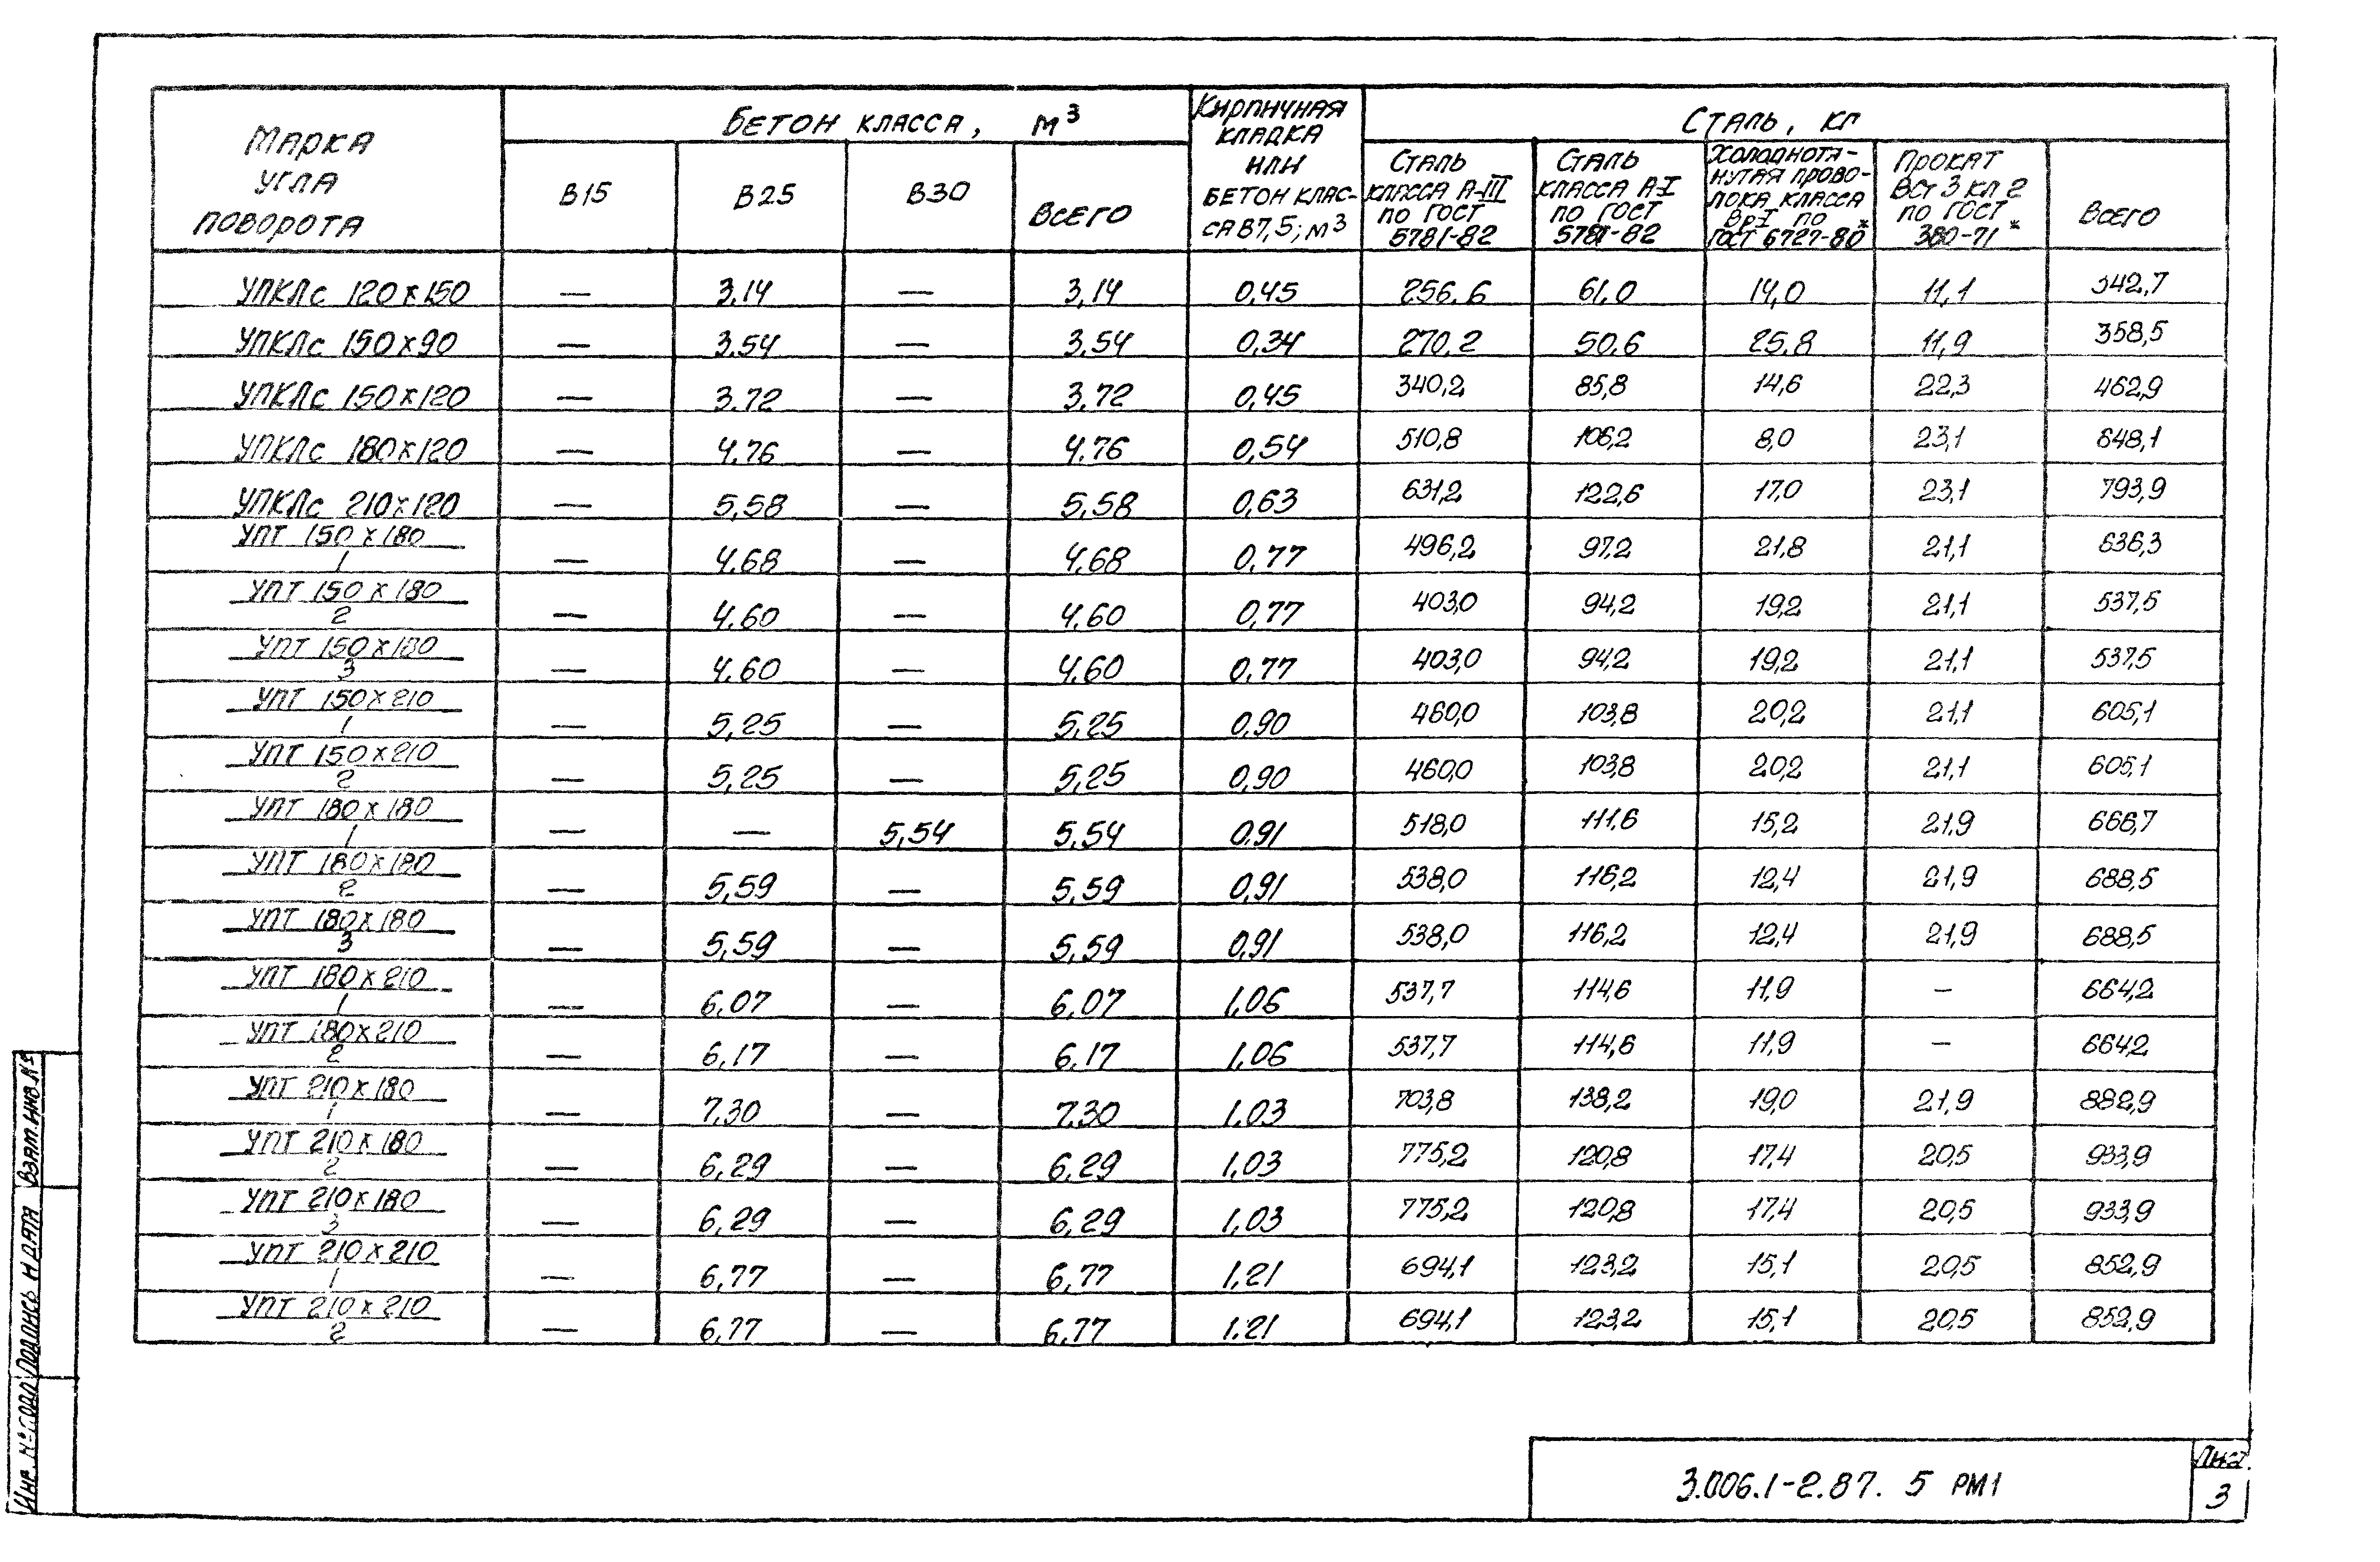 Марка угла поворота | Бетон класса, м³ | Кирпичная кладка или бетон класса В7,5; м³ | Сталь, кг
В15 | В25 | В30 | Всего | Сталь класса А-III по ГОСТ 5781-82 | Сталь класса А-I по ГОСТ 5781-82 | Холоднотянутая проволока класса Вр-I по ГОСТ 6727-80* | Прокат ВСт 3 кп 2 по ГОСТ 380-71* | Всего
УПКЛс 120×150 | — | 3.14 | — | 3,14 | 0,45 | 256.6 | 61.0 | 14,0 | 11,1 | 342,7
УПКЛс 150×90 | — | 3.54 | — | 3.54 | 0.34 | 270.2 | 50.6 | 25.8 | 11,9 | 358,5
УПКЛс 150×120 | — | 3.72 | — | 3.72 | 0,45 | 340,2 | 85,8 | 14,6 | 22,3 | 462,9
УПКЛс 180×120 | — | 4.76 | — | 4.76 | 0,54 | 510,8 | 106,2 | 8,0 | 23,1 | 648,1
УПКЛс 210×120 | — | 5,58 | — | 5.58 | 0,63 | 631,2 | 122,6 | 17,0 | 23,1 | 793,9
УПТ 150×180/1 | — | 4.68 | — | 4,68 | 0.77 | 496,2 | 97,2 | 21,8 | 21,1 | 636,3
УПТ 150×180/2 | — | 4.60 | — | 4,60 | 0,77 | 403,0 | 94,2 | 19,2 | 21,1 | 537,5
УПТ 150×180/3 | — | 4.60 | — | 4,60 | 0.77 | 403,0 | 94,2 | 19,2 | 21,1 | 537,5
УПТ 150×210/1 | — | 5,25 | — | 5,25 | 0,90 | 460,0 | 103,8 | 20,2 | 21,1 | 605,1
УПТ 150×210/2 | — | 5,25 | — | 5,25 | 0,90 | 460,0 | 103,8 | 20,2 | 21,1 | 605,1
УПТ 180×180/1 | — | — | 5,54 | 5,54 | 0.91 | 518,0 | 111,6 | 15,2 | 21,9 | 666,7
УПТ 180×180/2 | — | 5,59 | — | 5,59 | 0,91 | 538,0 | 116,2 | 12,4 | 21,9 | 688,5
УПТ 180×180/3 | — | 5,59 | — | 5,59 | 0,91 | 538,0 | 116,2 | 12,4 | 21,9 | 688,5
УПТ 180×210/1 | — | 6,07 | — | 6,07 | 1,06 | 537,7 | 114,6 | 11,9 | — | 664,2
УПТ 180×210/2 | — | 6,17 | — | 6,17 | 1,06 | 537,7 | 114,6 | 11,9 | — | 664,2
УПТ 210×180/1 | — | 7,30 | — | 7,30 | 1,03 | 703,8 | 138,2 | 19,0 | 21,9 | 882,9
УПТ 210×180/2 | — | 6,29 | — | 6,29 | 1,03 | 775,2 | 120,8 | 17,4 | 20,5 | 933,9
УПТ 210×180/3 | — | 6,29 | — | 6,29 | 1,03 | 775,2 | 120,8 | 17,4 | 20,5 | 933,9
УПТ 210×210/1 | — | 6,77 | — | 6,77 | 1,21 | 694,1 | 123,2 | 15,1 | 20,5 | 852,9
УПТ 210×210/2 | — | 6,77 | — | 6,77 | 1.21 | 694,1 | 123,2 | 15,1 | 20,5 | 852,9
Инв. № подл. | Подпись и дата | Взам. инв. №
3.006.1-2.87. 5 РМ1
Лист
3